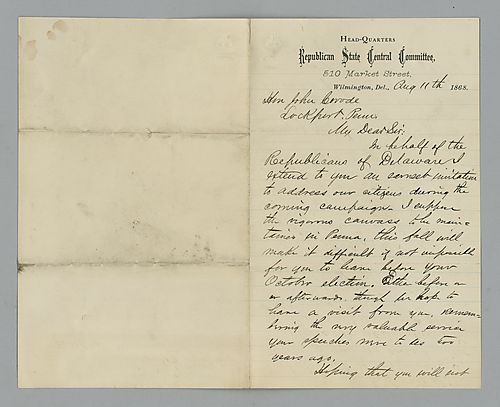 Head-Quarters
Republican State Central Committee,
510 Market Street,
Wilmington, Del., Aug 11th 1868.
Hon John Covode
Lockport Penn
My Dear Sir;
In behalf of the
Republicans of Delaware I
extend to you an earnest invitation
to address our citizens during the
coming campaign. I suppose
the vigorous canvass to be main-
tained in Penna, this fall will
make it difficult if not impossible
for you to leave before your
October election. Either before or
or afterwards though we hope to
have a visit from you, remem-
bering the very valuable service
your speeches were to us two
years ago.
Hoping that you will not